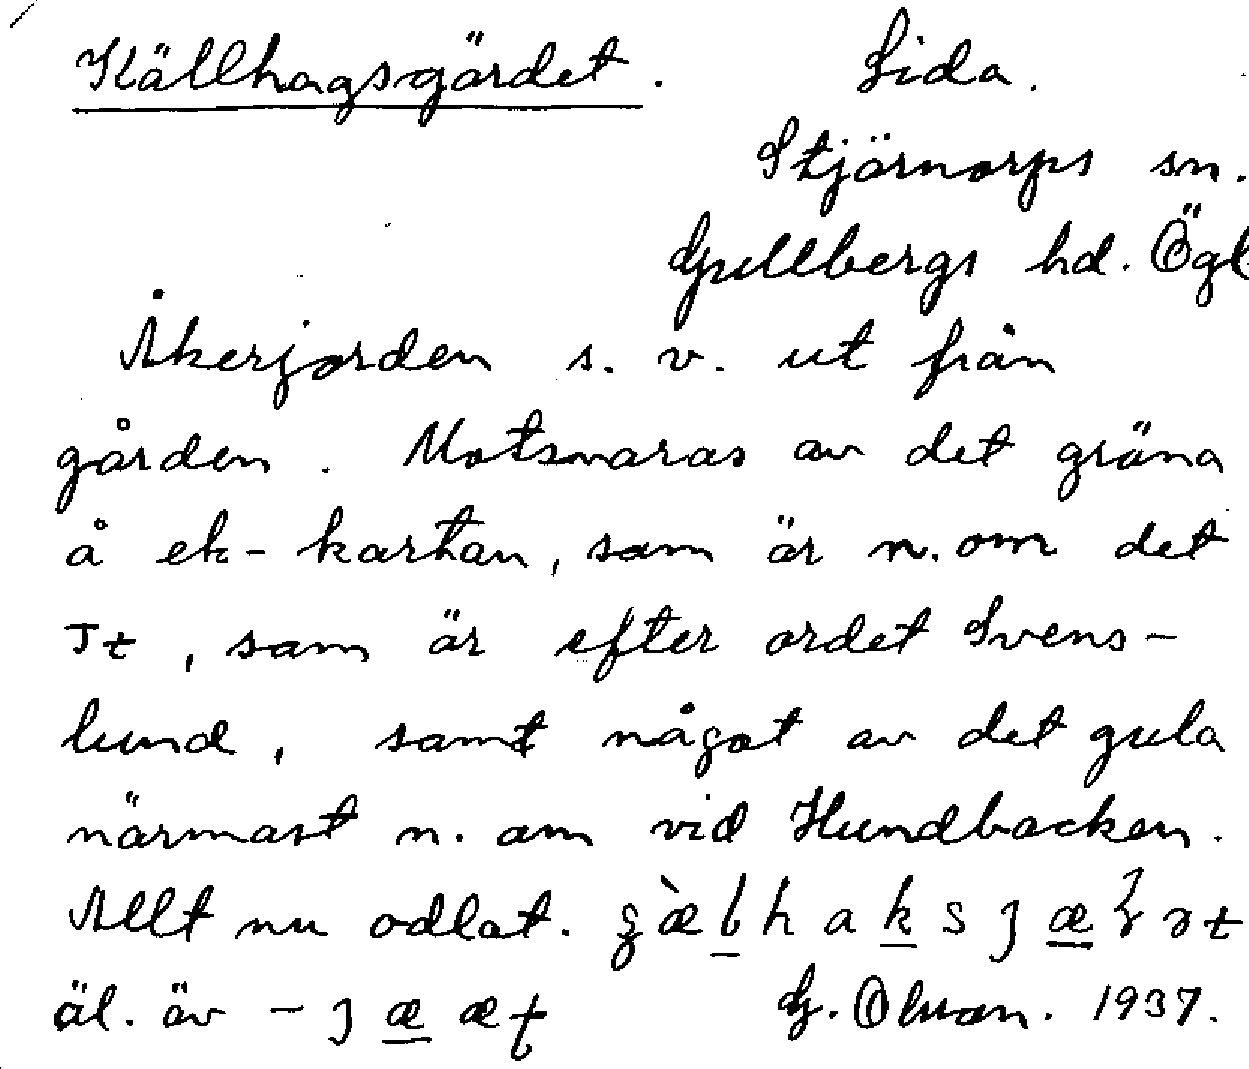 Källhagsgärdet. Lida.
Stjärnorps sn.
Gullbergs hd. Ögl
Åkerjorden s. v. ut från
gården. Motsvaras av det gröna
å ek-kartan, som är n. om det
Jt, som är efter ordet Svens-
lund, samt något av det gula
närmast n. om vid Hundbacken.
Allt nu odlat.
äl. äv G. Olson. 1937.